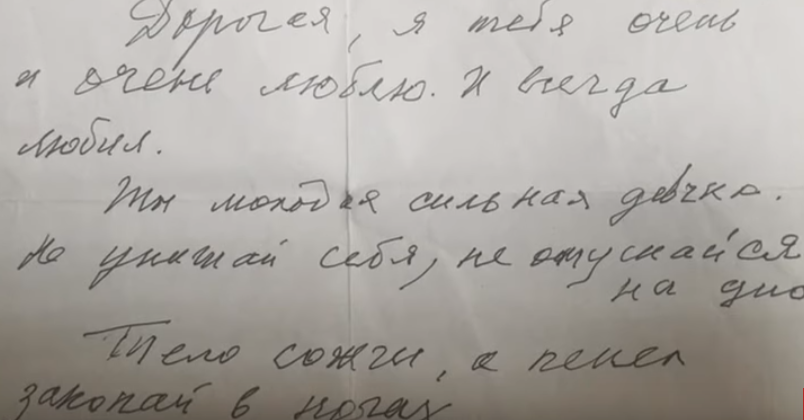 Дорогая, я тебя очень
и очень люблю. И всегда
любил.
Ты молодая сильная девчка.
Не унижай себя, не опускайся
на дно
Тело сожги, а пепел
закопай в ногах